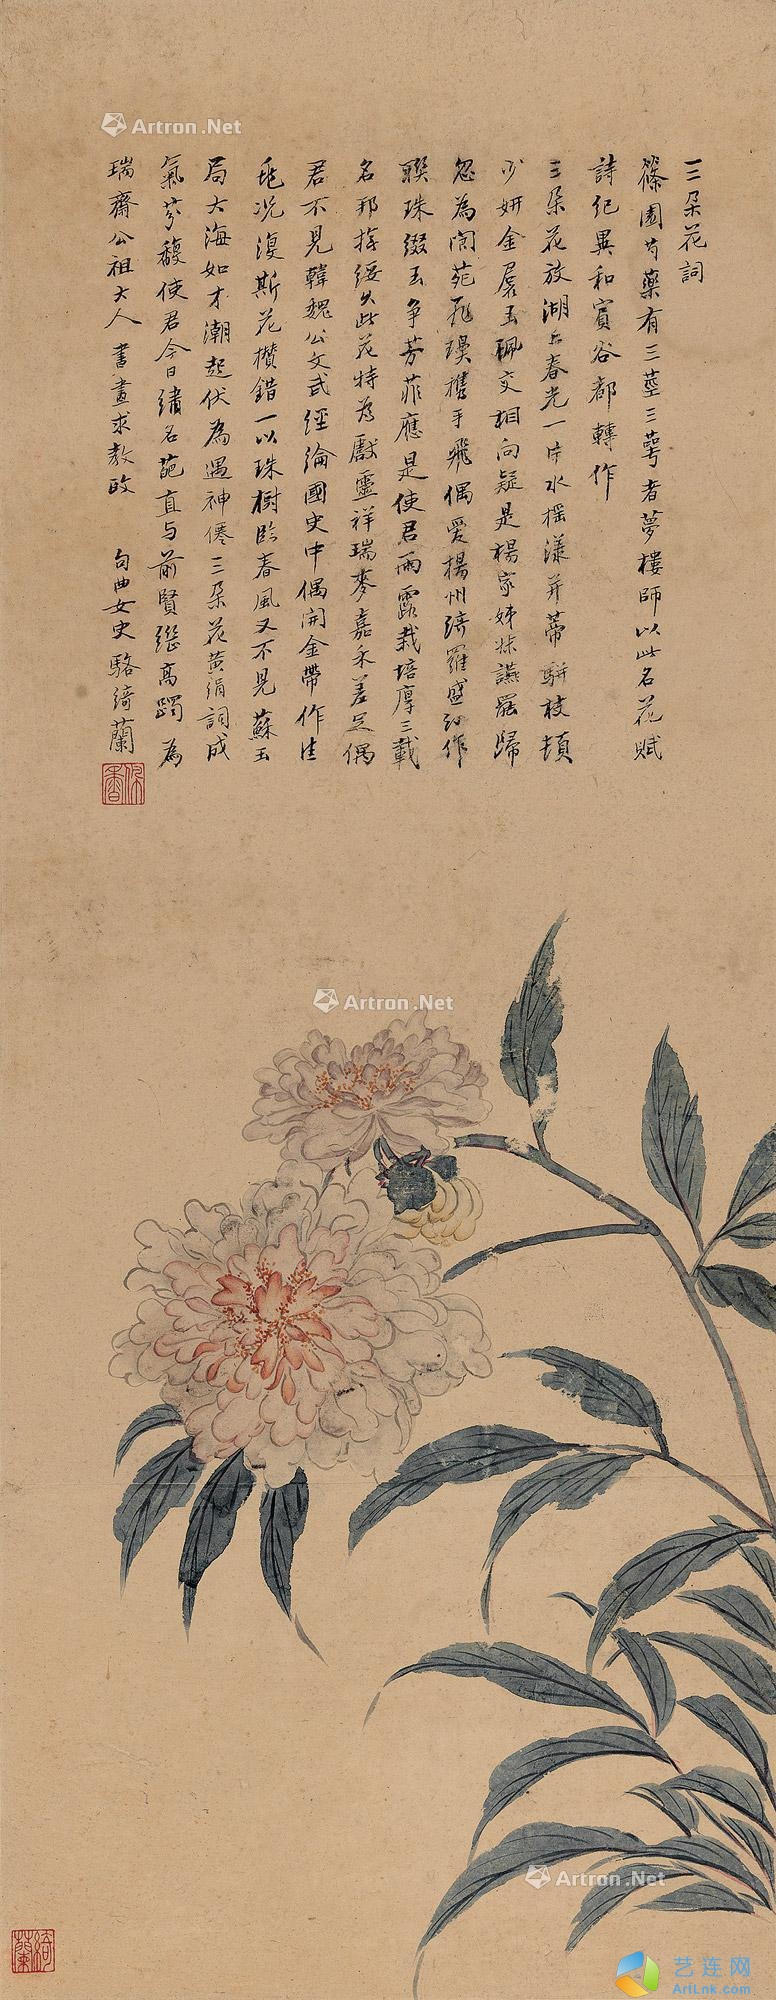 三朵花詞
篠園芍藥有三莖三萼者夢樓師以此名花賦
詩紀異和賓谷都轉作
三朵花放湖上春光一片水摇漾并蒂駢枝頓
妍金屋玉珮交相向疑是楊家姊妹讌罷歸
忽為閬苑飛瓊携手飛偶愛楊州綺羅盛幻作
聯珠綴玉争芳菲應是使君雨露栽培厚三載
名邦此花特為獻靈祥瑞麥嘉禾差足偶
君不見韓魏公文武經綸國史中偶開金帶作佳
況復斯花攢錯一以珠樹臨春風又不見蘇玉
局大海如才潮起伏為遇神僊三朵花黃絹詞成
氣芬馥使君今日繡名葩直与前賢繼高躅 為
瑞齋公祖大人 書畫求教政 句曲女史駱綺蘭
佩香
綺蘭
Artron.Net
Artron.Net
Artron.Net
艺连网
ArtLnk.com